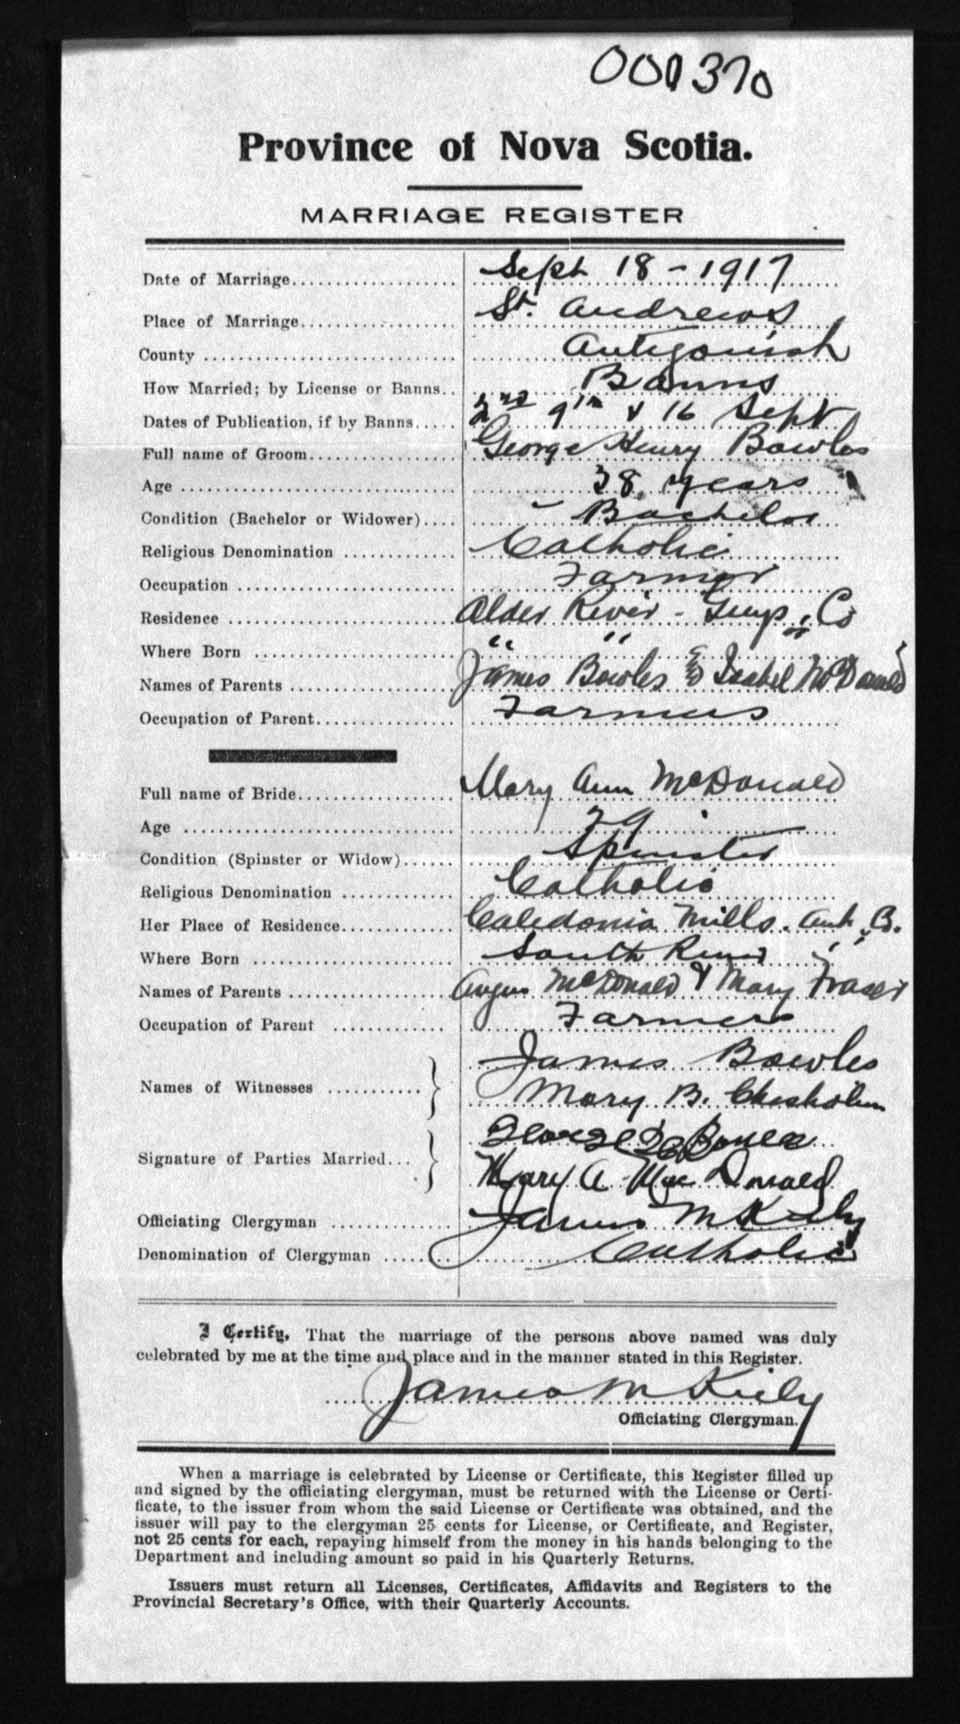 000370
Province of Nova Scotia.
MARRIAGE REGISTER
Date of Marriage Sept 18 - 1917
Place of Marriage St. Andrews
County Antigonish
How Married; by License or Banns Banns
Dates of Publication, if by Banns 2nd 9th & 16 Sept
Full name of Groom George Henry Bowles
Age 38 years
Condition (Bachelor or Widower) Bachelor
Religious Denomination Catholic
Occupation Farmer
Residence Alder River - Guys. Co
Where Born " "
Names of Parents James Bowles & Isabel McDonald
Occupation of Parent Farmers
Full name of Bride Mary Ann McDonald
Age 29
Condition (Spinster or Widow) Spinster
Religious Denomination Catholic
Her Place of Residence Caledonia Mills. Ant. Co.
Where Born South River " "
Names of Parents Angus McDonald & Mary Fraser
Occupation of Parent Farmers
Names of Witnesses James Bowles
Mary B. Chisholm
Signature of Parties Married George
Mary A Mac Donald
Officiating Clergyman James M Kiely
Denomination of Clergyman Catholic
I Certify, That the marriage of the persons above named was duly
celebrated by me at the time and place and in the manner stated in this Register.
James M Kiely
Officiating Clergyman.
When a marriage is celebrated by License or Certificate, this Register filled up
and signed by the officiating clergyman, must be returned with the License or Certi-
ficate, to the issuer from whom the said License or Certificate was obtained, and the
issuer will pay to the clergyman 25 cents for License, or Certificate, and Register,
not 25 cents for each, repaying himself from the money in his hands belonging to the
Department and including amount so paid in his Quarterly Returns.
Issuers must return all Licenses, Certificates, Affidavits and Registers to the
Provincial Secretary's Office, with their Quarterly Accounts.